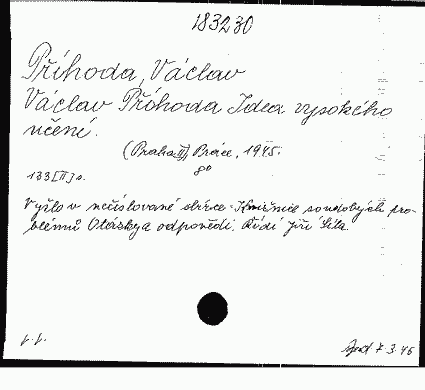 183230
Příhoda, Václav
Václav Příhoda Idea vysokého
učení.
(Praha II), Práce, 1945.
8°
133 [II] s.
Vyšlo v nečíslované sbírce - Knižnice soudobých pro-
blémů Otázky a odpovědi. Řídí Jiří Síla.
7.3.46